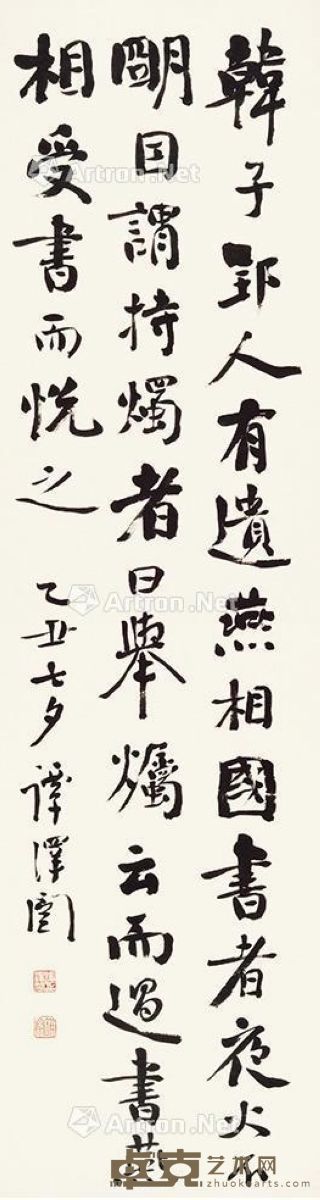 韓子郢人有遺燕相國書者夜火不
朙因謂持燭者曰舉燭云而過書燕
相受書而悅之
乙丑七夕 譚澤闓
Artron.Net
卓克艺术网
zhuokearts.com